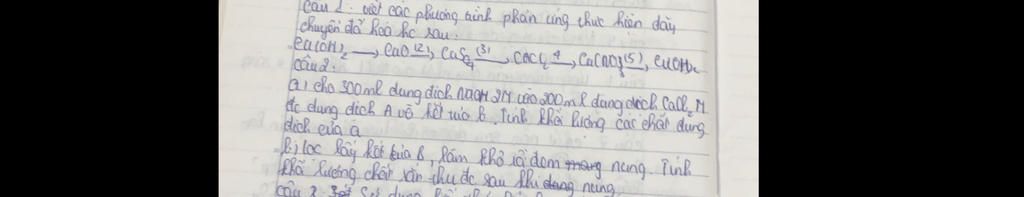 câu 1: viết các phương trình phản ứng thực hiện dãy
chuyển đổi hoá hc sau:
Cu(OH)₂ → CuO (2)→ CuSO₄ (3)→ CuCl₂ 4→ Cu(NO₃)₂ (5)→ Cu(OH)₂
câu 2:
a) cho 300ml dung dịch NaOH 2M vào 200ml dung dịch CuCl₂ M
đc dung dịch A và kết tủa B. Tính khối lượng các chất dung
dịch của a
b) lọc lấy kết tủa B, làm khô rồi đem nung. Tính
khối lượng chất rắn thu đc sau khi nung
câu 3